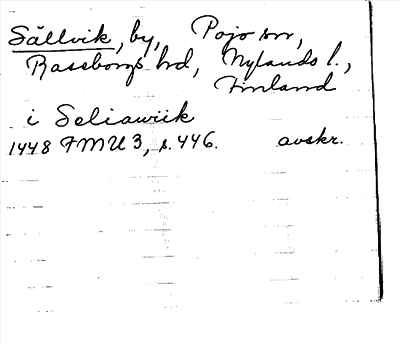 Sällvik, by, Pojo sn,
Raseborgs hd, Nylands l.,
Finland
i Seliawiik
1448 FMU 3, s. 446. avskr.